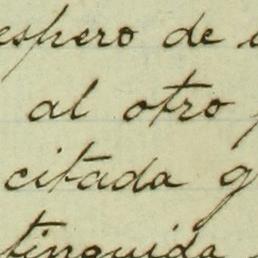 espero de
al otro
citada
tinguida